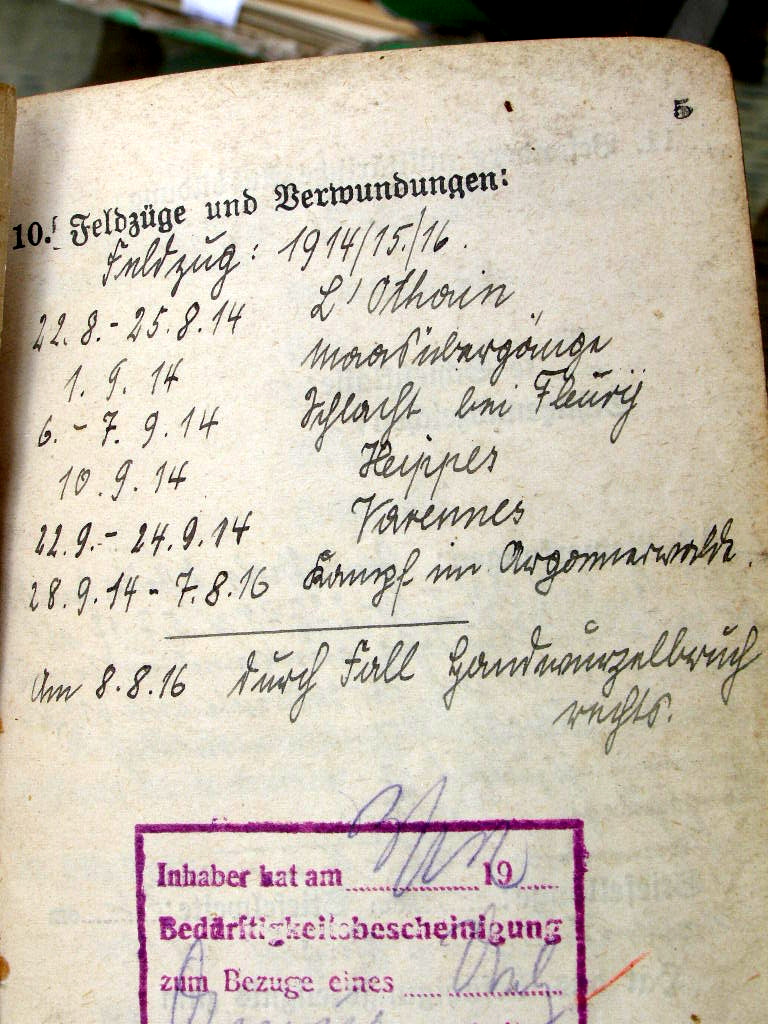 5
10. Feldzüge und Verwundungen:
Feldzug: 1914/15./16.
22.8.-25.8.14 L'Othain
1.9.14 Maasübergänge
6.-7.9.14 Schlacht bei Fleury
10.9.14 Heippes
22.9.-24.9.14 Varennes
28.9.14-7.8.16 Kampf im Argonnerwalde.
Am 8.8.16 durch Fall Handwurzelbruch
rechts.
Inhaber hat am 19
Bedürftigkeitsbescheinigung
zum Bezuge eines